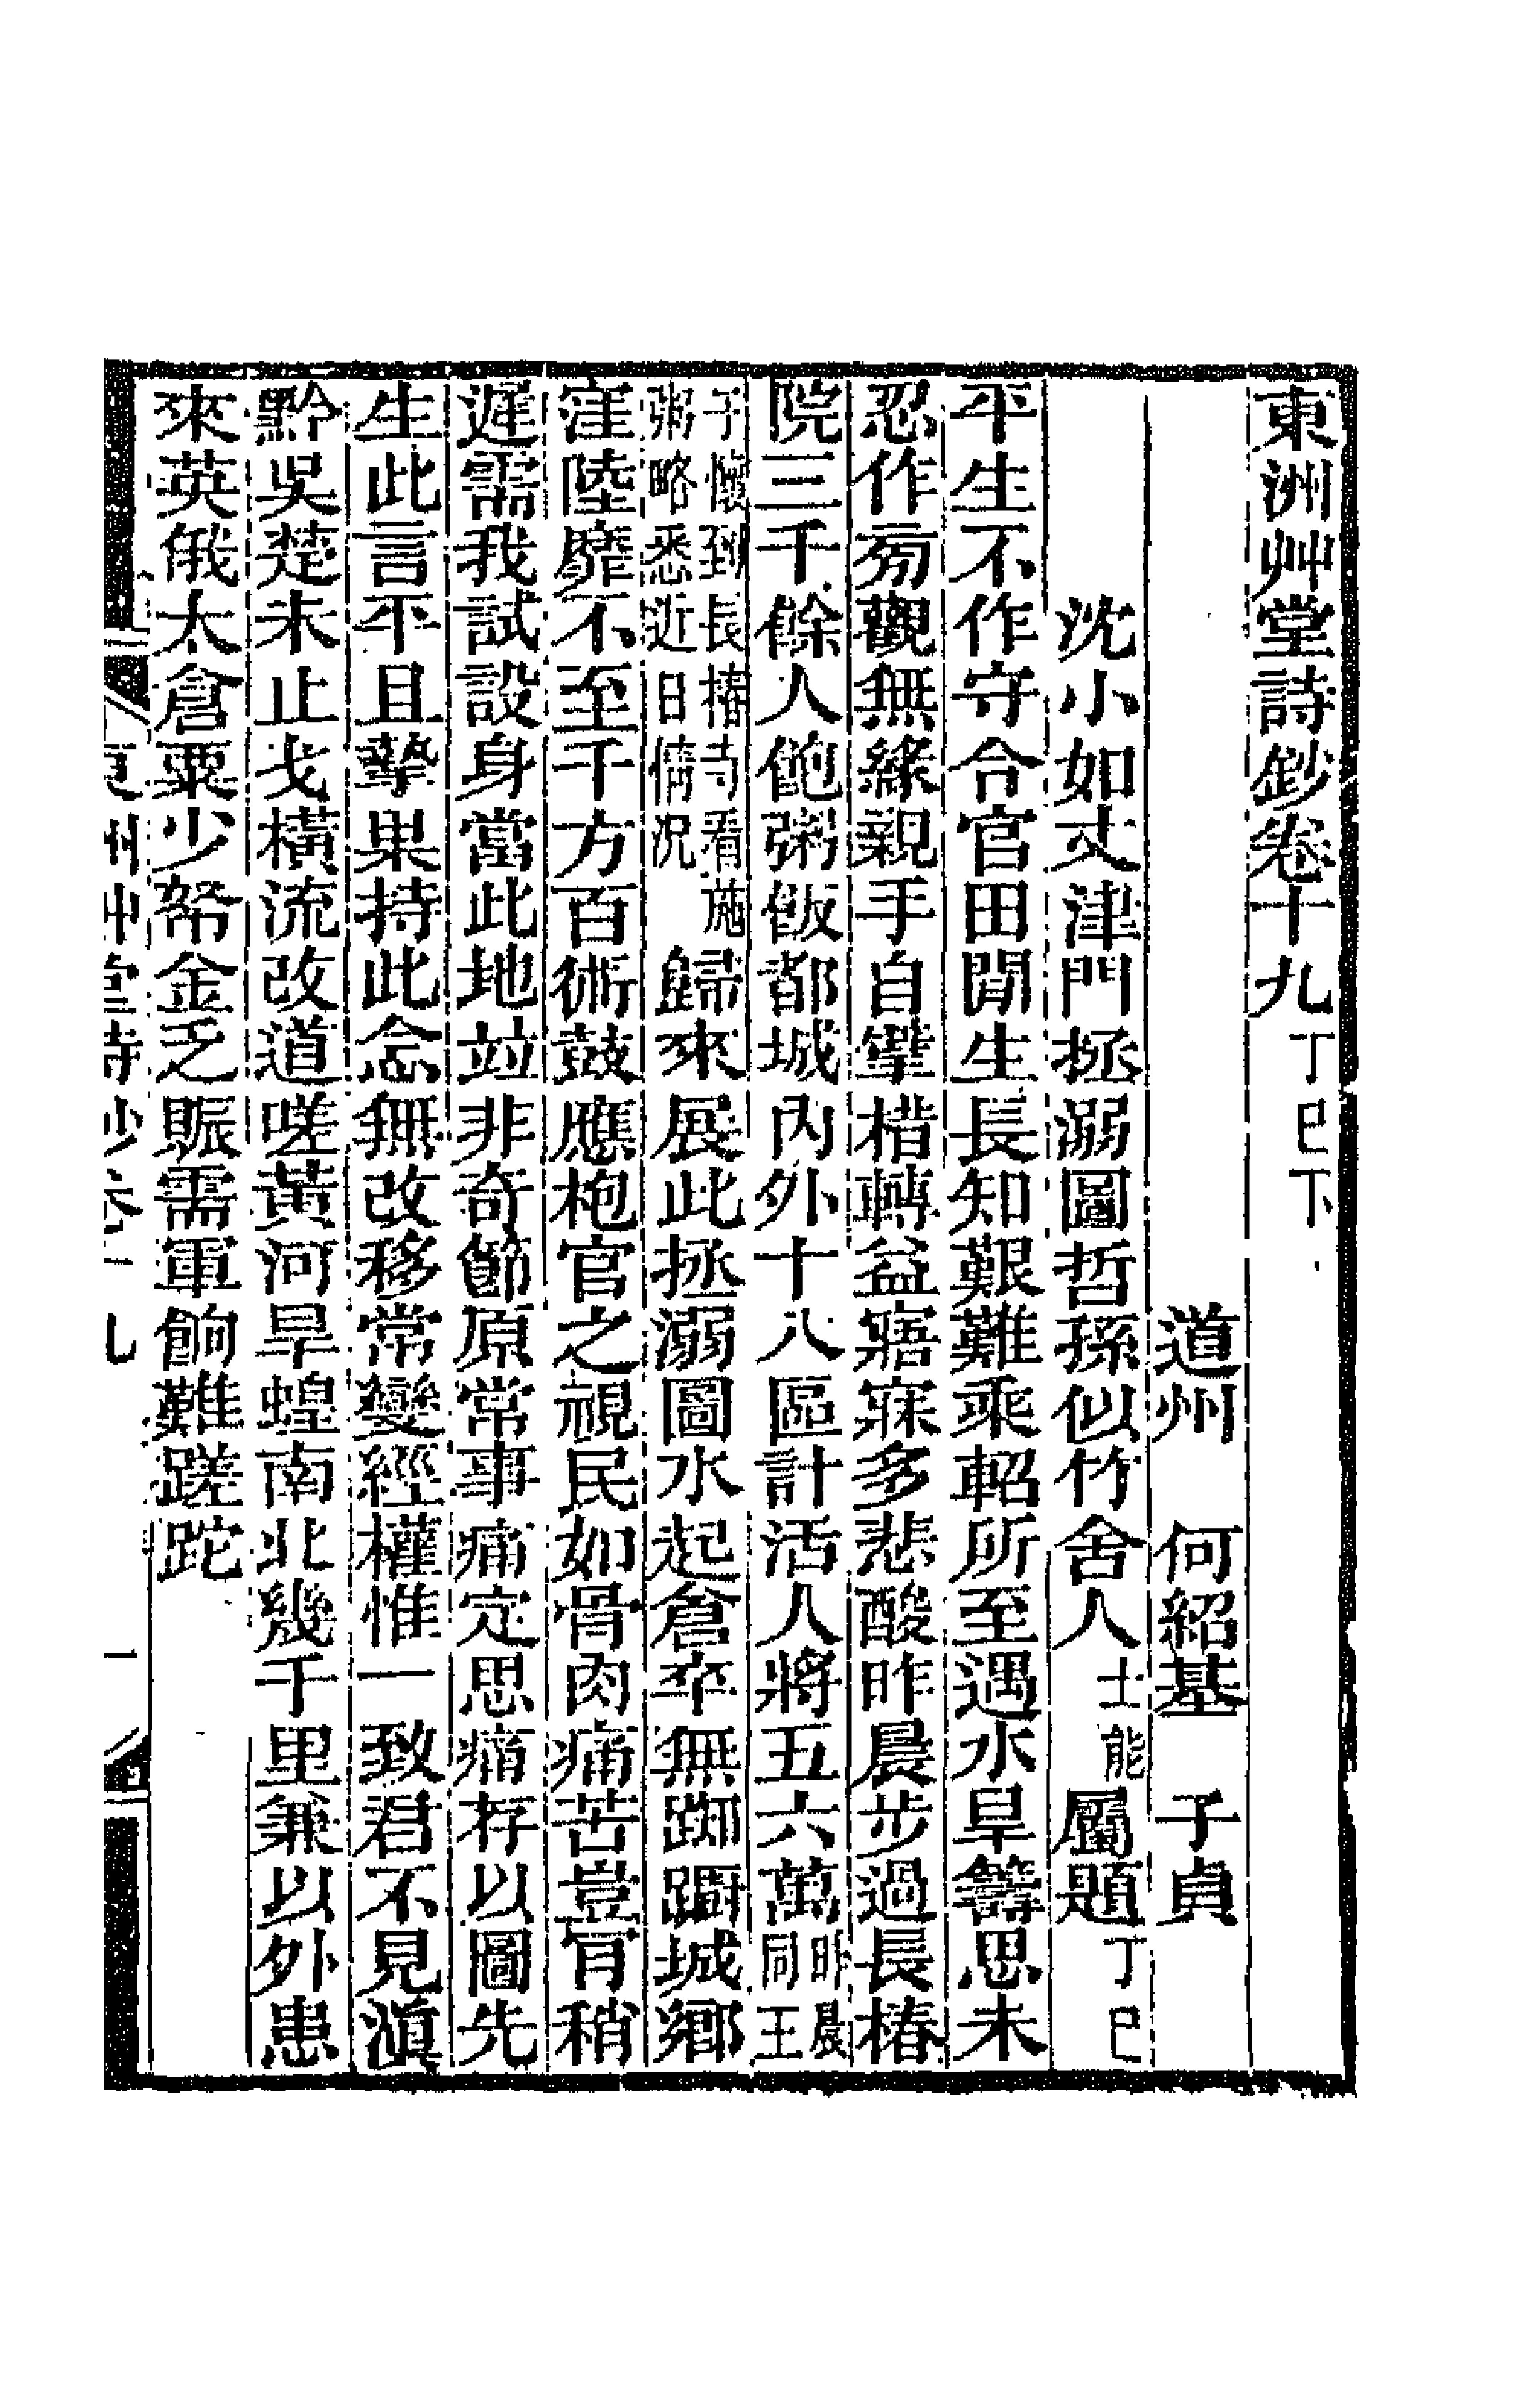 東洲艸堂詩鈔卷十九丁巳下
道州　何紹基　子貞
沈小如丈津門拯溺圖哲孫似竹舍人士能屬題丁巳
平生不作守令官田閒生長知艱難乘軺所至遇水旱籌思未
忍作旁觀無緣親手自擘措轉益寤寐多悲酸昨晨步過長椿
院三千餘人飽粥飯都城內外十八區計活人將五六萬昨晨同王
子懷到長椿寺看施粥略悉近日情況歸來展此拯溺圖水起倉卒無踟躕城鄉
窪陸靡不至千方百術鼓應枹官之視民如骨肉痛苦豈肎稍
遲需我試設身當此地竝非奇節原常事痛定思痛存以圖先
生此言平且摯果持此念無改移常變經權惟一致君不見滇
黔吳楚未止戈橫流改道嗟黃河旱蝗南北幾千里兼以外患
來英俄太倉粟少帑金乏賑需軍餉難蹉跎
東洲艸堂詩鈔卷十九　一